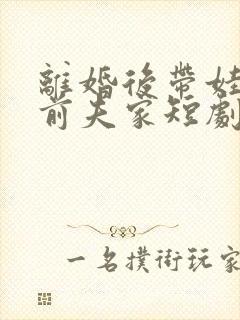 離婚後帶娃
前夫家短劇
一名撲街玩家